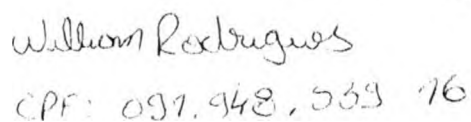 William Rodrigues
CPF: 091.948.539 16